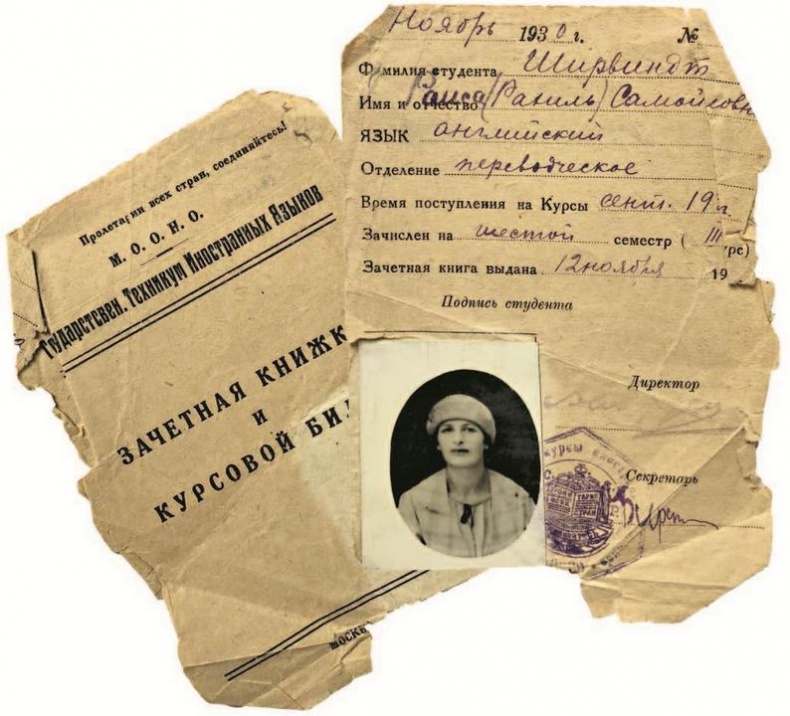 Пролетарии всех стран, соединяйтесь!
М. О. О. Н. О.
Государствен. Техникум Иностранных Языков
ЗАЧЕТНАЯ КНИЖК
И
КУРСОВОЙ БИЛ
МОСКВ
Ноябрь 1930 г. №
Фамилия студента Ширвиндт
Имя и отчество Раиса (Рахиль) Самойловн
ЯЗЫК английский
Отделение переводческое
Время поступления на Курсы сент. 19 г.
Зачислен на шестой семестр (III урс)
Зачетная книга выдана 12 ноября 19
Подпись студента
Директор
Секретарь